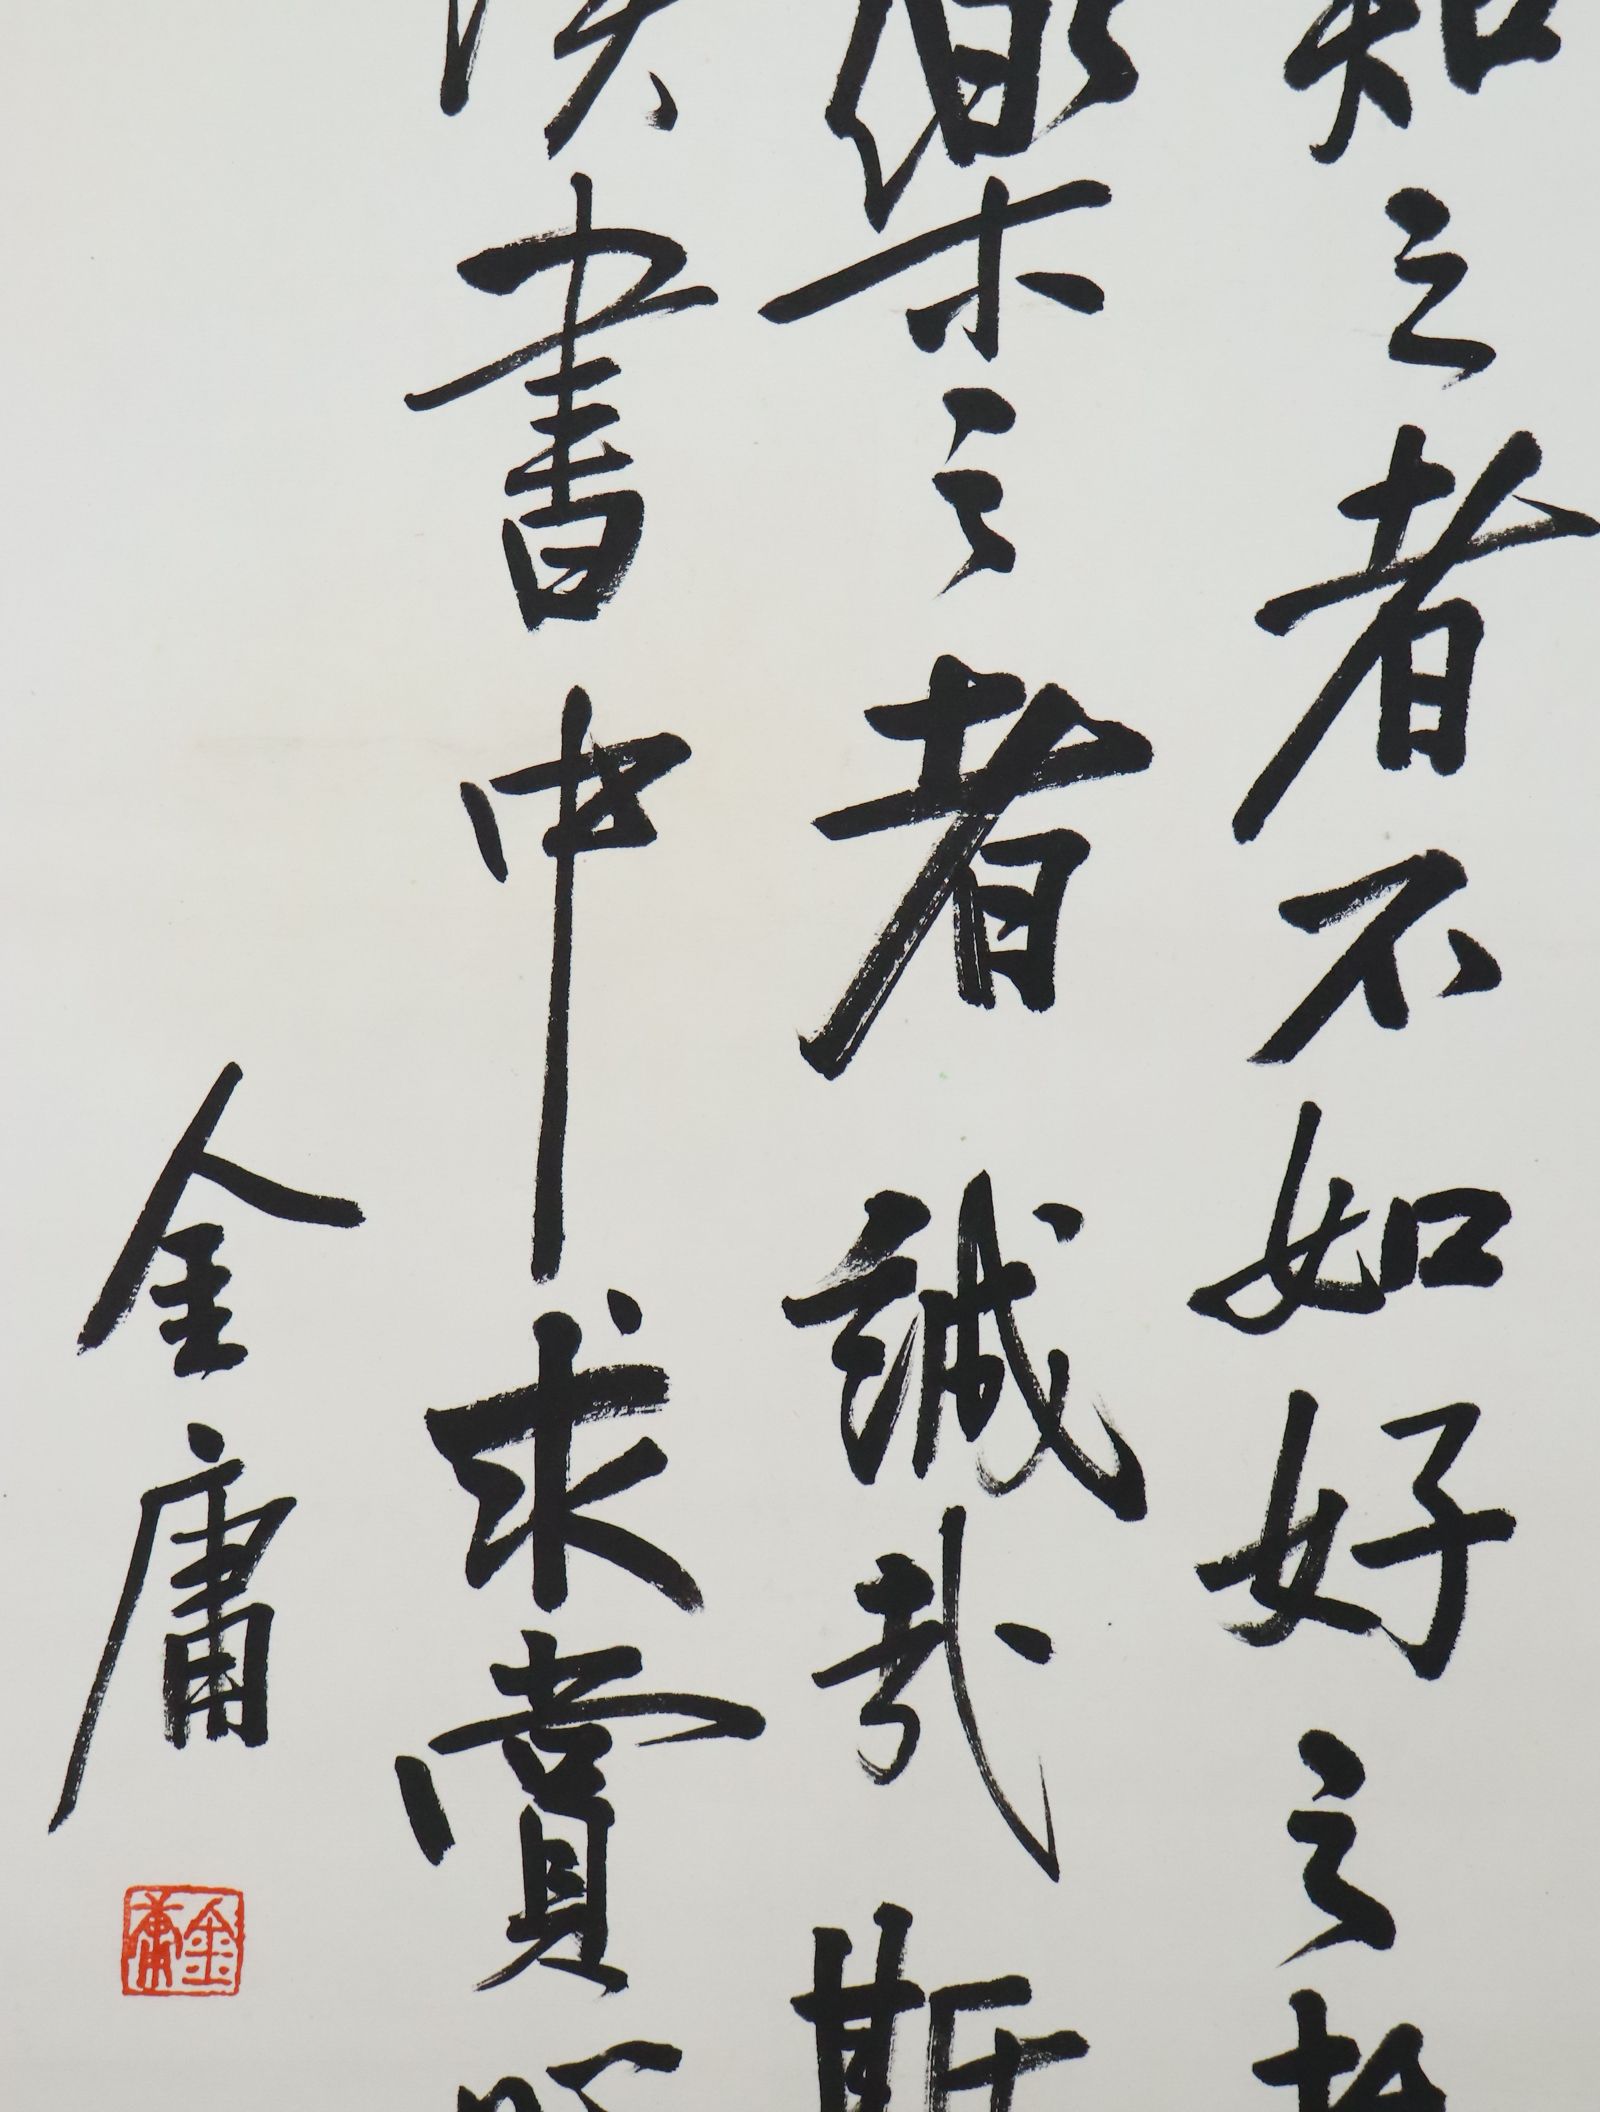 知之者不如好之者
樂之者誠哉斯
書中求賞
金庸
金庸